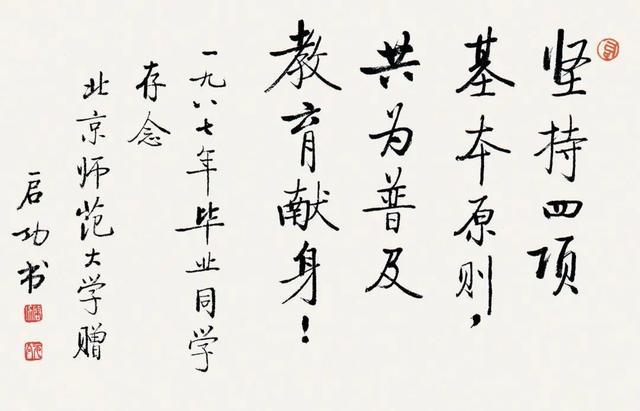 坚持四项
基本原则，
共为普及
教育献身！
一九八七年毕业同学
存念
北京师范大学赠
启功书